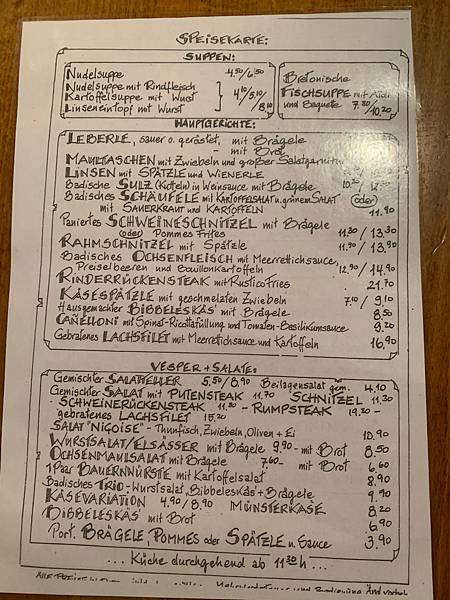 SPEISEKARTE:
SUPPEN:
Nudelsuppe 4.50/6.50
Nudelsuppe mit Rindfleisch
Kartoffelsuppe mit Wurst } 4.10/5.10/
Linseneintopf mit Wurst 8.10
Bretonische
FISCHSUPPE mit Aioli
und Baguette 7.20/10.20
HAUPTGERICHTE:
LEBERLE, sauer o. geröstet, mit Brägele
- mit Brot
MAULTASCHEN mit Zwiebeln und großer Salatgarnitur
LINSEN mit SPÄTZLE und WIENERLE
Badische SULZ (Kutteln) in Weinsauce mit Brägele
Badisches SCHÄUFELE mit KARTOFFELSALAT u. grünem SALAT oder
mit SAUERKRAUT und KARTOFFELN 11.90
Paniertes SCHWEINESCHNITZEL mit Brägele
oder Pommes Frites 11.30 / 13.30
RAHMSCHNITZEL mit Spätzle 11.90 / 13.90
Badisches OCHSENFLEISCH mit Meerrettichsauce,
Preiselbeeren und Bouillonkartoffeln 12.90 / 14.90
RINDERRÜCKENSTEAK mit Rustico Fries 21.70
KÄSESPÄTZLE mit geschmelzten Zwiebeln 7.10 / 9.10
Hausgemachter BIBBELESKÄS' mit Brägele 8.50
CANELLONI mit Spinat-Ricottafüllung und Tomaten-Basilikumsauce 9.20
Gebratenes LACHSFILET mit Meerrettichsauce und Kartoffeln 16.90
VESPER + SALATE:
Gemischter SALATTELLER 5.50/8.90 Beilagensalat gem. 4.10
Gemischter SALAT mit PUTENSTEAK 11.70 SCHNITZEL 11.30
- SCHWEINERÜCKENSTEAK 11.20 - RUMPSTEAK 19.20 -
gebratenes LACHSFILET 15.20
SALAT "NIÇOISE" - Thunfisch, Zwiebeln, Oliven + Ei 10.90
WURSTSALAT/ELSÄSSER mit Brägele 9.90 - mit Brot 8.50
OCHSENMAULSALAT mit Brägele 7.60 - mit Brot 6.60
1 Paar BAUERNWÜRSTE mit Kartoffelsalat 8.90
Badisches TRIO - Wurstsalat, Bibbeleskäs' + Brägele 9.90
KÄSEVARIATION 4.90 / 8.90 MÜNSTERKÄSE 8.20
BIBBELESKÄS mit Brot 6.90
Port. BRÄGELE, POMMES oder SPÄTZLE u. Sauce 3.90
... Küche durchgehend ab 11.30 h ...